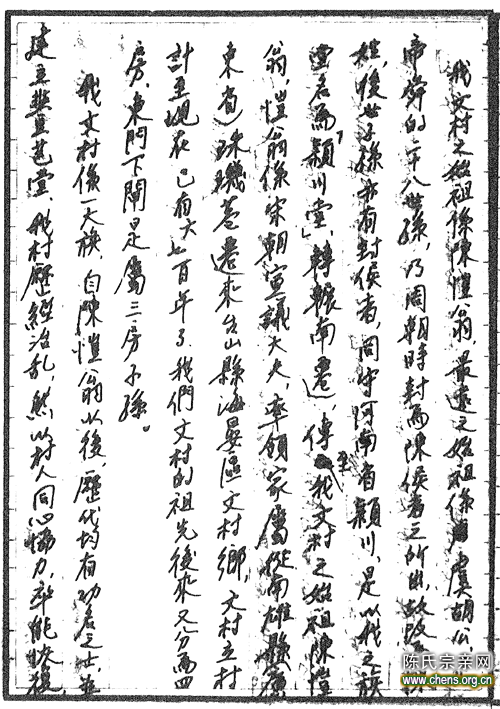 我文村之始祖係陳愷翁，最遠之始祖係虞胡公，
帝舜的二十八世孫，乃周朝時封為陳侯者之所出，故改
姓，後世子孫亦有封侯者，同守河南省穎川，是以我之族
堂名為「穎川堂」，轉輾南遷，傳至我文村之始祖陳愷
翁，愷翁係宋朝宣議大夫，率領家屬從南雄縣廣
東省珠璣巷遷來台山縣海晏區文村鄉，文村立村
計至現在已有六七百年了，我們文村的祖先後來又分為四
房，東門下閘是屬三房子孫。
我文村係一大族，自陳愷翁以後，歷代均有功名之士，並
建立堂，我村歷經治乱，然以村人同心協力，卒能恢復，
陈氏宗亲网
www.chens.org.cn